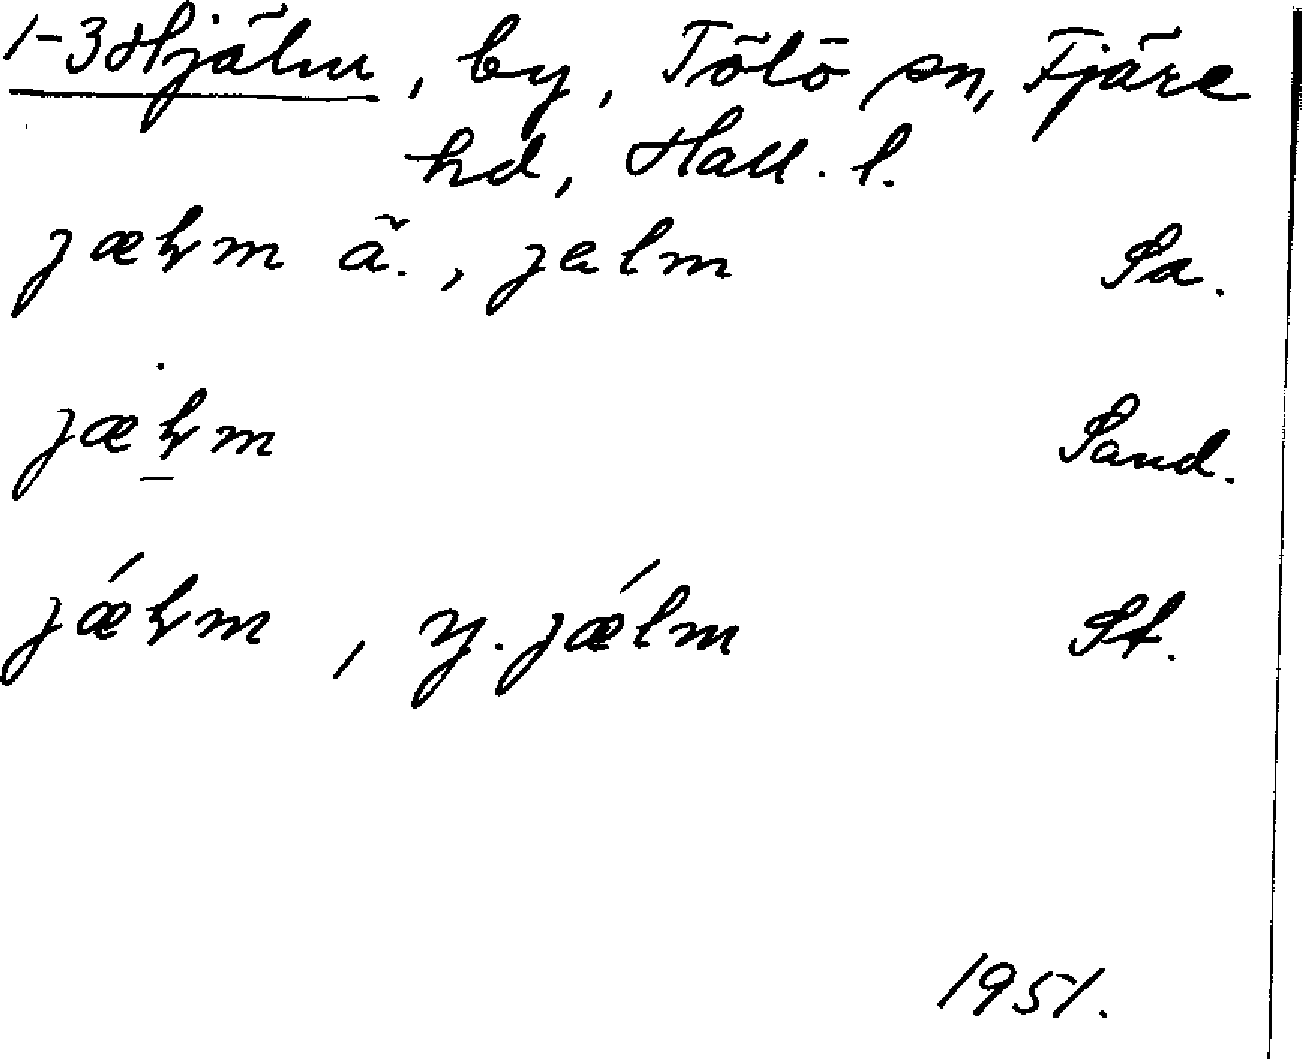 1-3 Hjälm, by, Tölö sn, Fjäre
hd, Hall. l.
jæɫm ä., jalm Sa.
jæɫm Sand.
jǽɫm, y. jǽlm St.
1951.